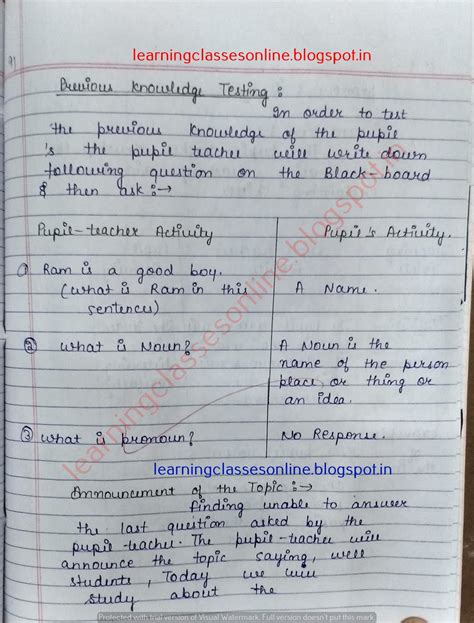 learningclassesonline.blogspot.in
Previous Knowledge Testing :
In order to test
the previous knowledge of the pupil
's the pupil teacher will write down
following question on the Black-board
& then ask :→
Pupil-teacher Activity Pupil's Activity.
① Ram is a good boy.
(what is Ram in this A Name.
sentences)
② What is Noun? A Noun is the
name of the person
place or thing or
an idea.
③ What is pronoun? No Response.
learningclassesonline.blogspot.in
Announcement of the Topic :→
finding unable to answer
the last question asked by the
pupil-teacher. The pupil-teacher will
announce the topic saying, well
students, Today we will
study about the
learningclassesonline.blogspot.in
Protected with trial version of Visual Watermark. Full version doesn't put this mark.